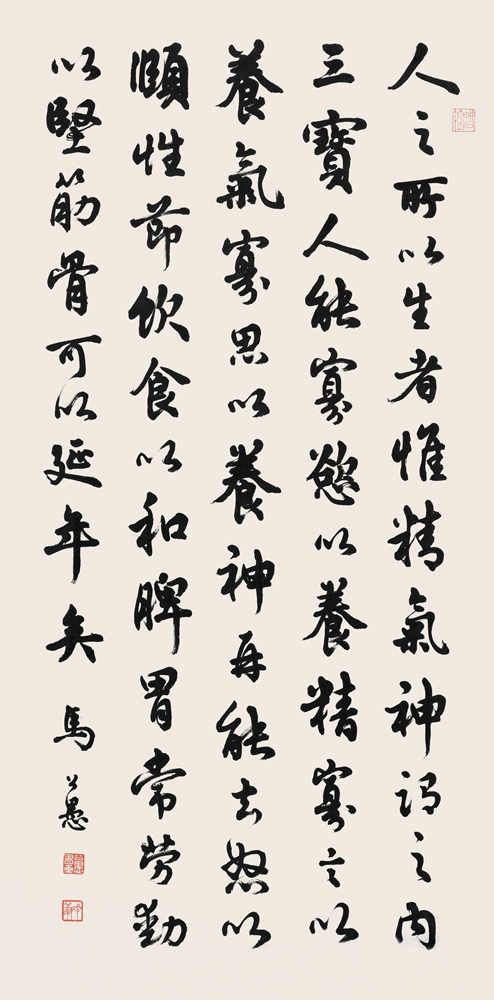 人之所以生者惟精氣神謂之內
三寶人能寡慾以養精寡言以
養氣寡思以養神再能去怒以
頤性節飲食以和脾胃常勞動
以堅筋骨可以延年矣
馬公愚